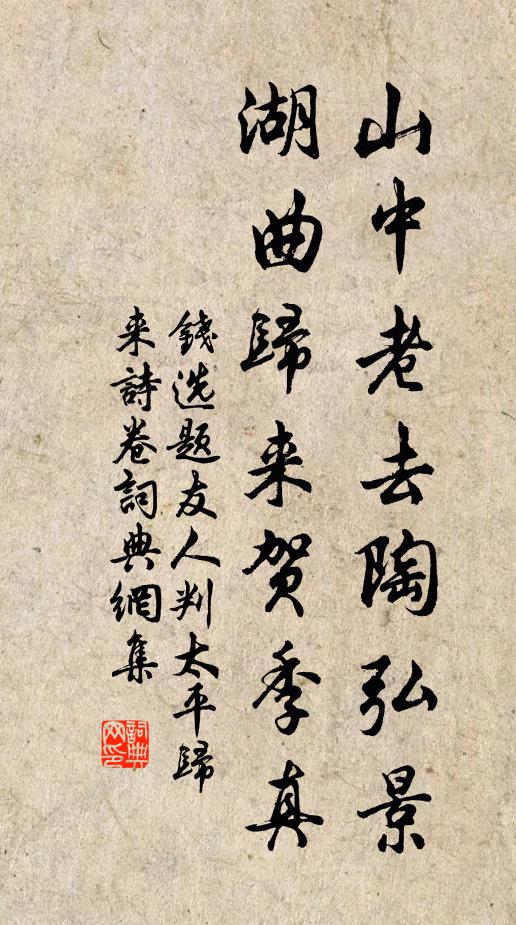 山中老去陶弘景
湖曲歸来贺季真
錢选题友人判太平歸
来詩卷詞典網集
詞典
网印